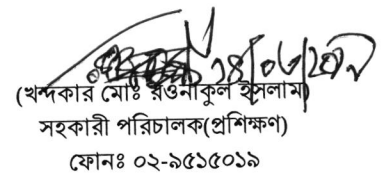 (খন্দকার মোঃ রওনাকুল ইসলাম)
সহকারী পরিচালক(প্রশিক্ষণ)
ফোনঃ ০২-৯৫১৫০১৯